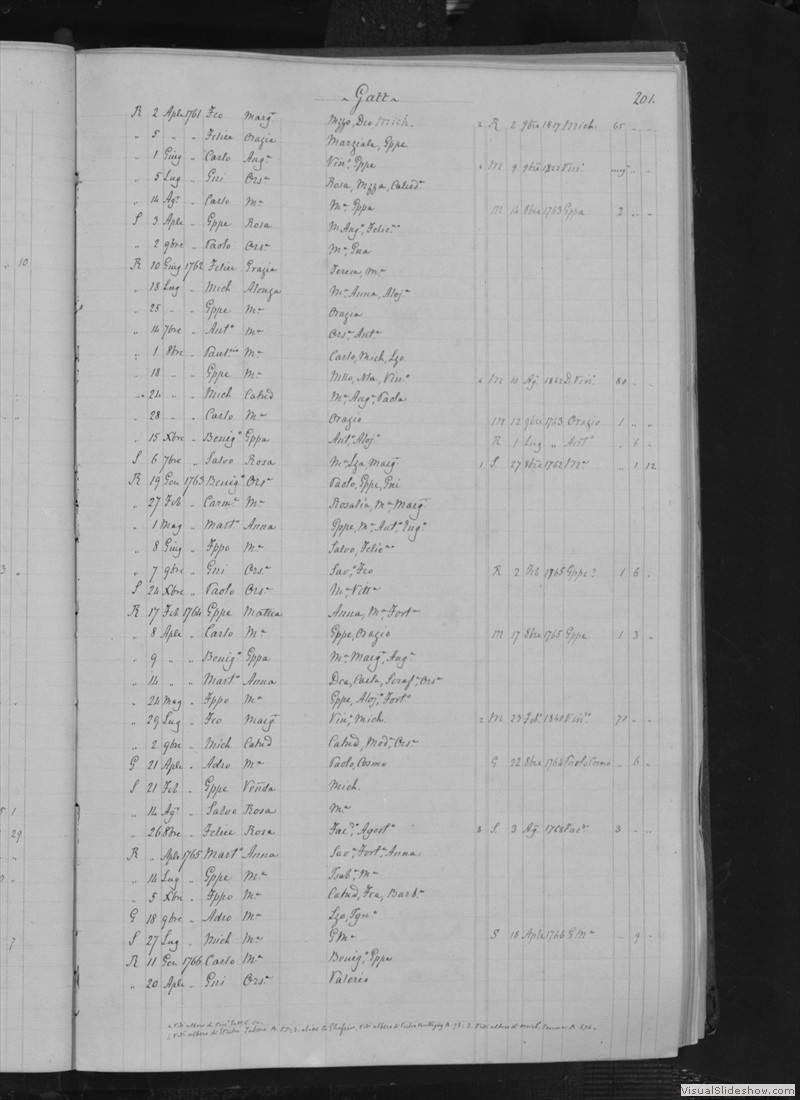 Gatt
201.
R 2 Aple 1761 Fco Marg^a Mzzo, Dco, Mich. 2 R 2 9bre 1817 Mich. 65 " "
" 5 " " Felice Orazia Marziale, Gppe
" 1 Giug " Carlo Ang^a Vin^o, Gppe 4 M 9 9bre Vin^o
" 5 Lug " Gni Ors^a Rosa, Mzza, Catnd^a
" 14 Ag^o " Carlo M^a M^a Gppa M 14 8bre 1763 Gppa 2 " "
S 3 Aple " Gppe Rosa M Ang^a, Felic^na
" 2 9bre " Paolo Ors^a M^a, Gna
R 10 Giug 1762 Felice Grazia Teresa, M^a
" 18 Lug " Mich Alonza M^a Anna, Aloj^a
" 25 " " Gppe M^a Orazia
" 14 7bre " Ant^o M^a Ors^a, Ant^a
" 1 8bre " M^a Carlo, Mich, Lzo
" 18 " " Gppe M^a Vin^o 4 M 10 Ag^o 1842 D. Vin^o 80 " "
" 24 " " Mich Catnd M^a, Ang^a, Paola
" 28 " " Carlo M^a Orazio M 12 9bre 1763 Orazio 1 " "
" 15 Xbre " Benig^o Gppa Ant^o, Aloj^a R 1 Lug " Ant^o " 6 "
S 6 7bre " Salvo Rosa M^a Lza, Marg^a 1 S 27 8bre 1762 M^a " 1 12
R 19 Gen 1763 Benig^o Ors^a Paolo, Gppe, Gni
" 27 Feb " Carm^o M^a Rosalia, M^a Marg^a
" 1 Mag " Mart^o Anna Gppe, M^a Ant^a, Eug^a
" 8 Giug " Fppo M^a Salvo, Felic^na
" 7 9bre " Gni Ors^a Sav^o, Fco R 2 Feb 1765 Gppe? 1 6 "
S 24 Xbre " Paolo Ors^a M^a Vitt^a
R 17 Feb 1764 Gppe Mattea Anna, M^a Fort^a
" 8 Aple " Carlo M^a Gppe, Orazio M 17 8bre 1765 Gppe 1 3 "
" 9 " " Benig^o Gppa M^a Marg^a, Ang^a
" 14 " " Mart^o Anna Dca, Carla, Seraf^a, Ors^a
" 24 Mag " Fppo M^a Gppe, Aloj^a, Fort^o
" 29 Lug " Fco Marg^a Vin^o, Mich. 2 M 23 Feb 1840 Vin^o 70 " "
" 2 9bre " Mich Catnd Catnd, Mod^a, Ors^a
G 21 Aple " Adeo M^a Paolo, Cosmo G 22 8bre 1764 Paolo Cosmo " 6 "
S 21 Feb " Gppe Venda Mich.
" 14 Ag^o " Salvo Rosa M^a
" 26 8bre " Felice Rosa Jac^o, Agost^a 3 S 3 Ag^o 1768 Jac^o 3 " "
R " Aple 1765 Mart^o Anna Sav^a, Fort^a, Anna
" 14 Lug " Gppe M^a Isab^a, M^a
" 5 Xbre " Fppo M^a Catnd, Fca, Barb^a
G 18 9bre " Adeo M^a Lzo, Ign^o
S 27 Lug " Mich M^a G M^a S 18 Aple 1766 G M^a " 9 "
R 11 Gen 1766 Carlo M^a Benig^o, Gppe
" 20 Aple " Gni Ors^a Valerio
10
29
7
VisualSlideshow.com